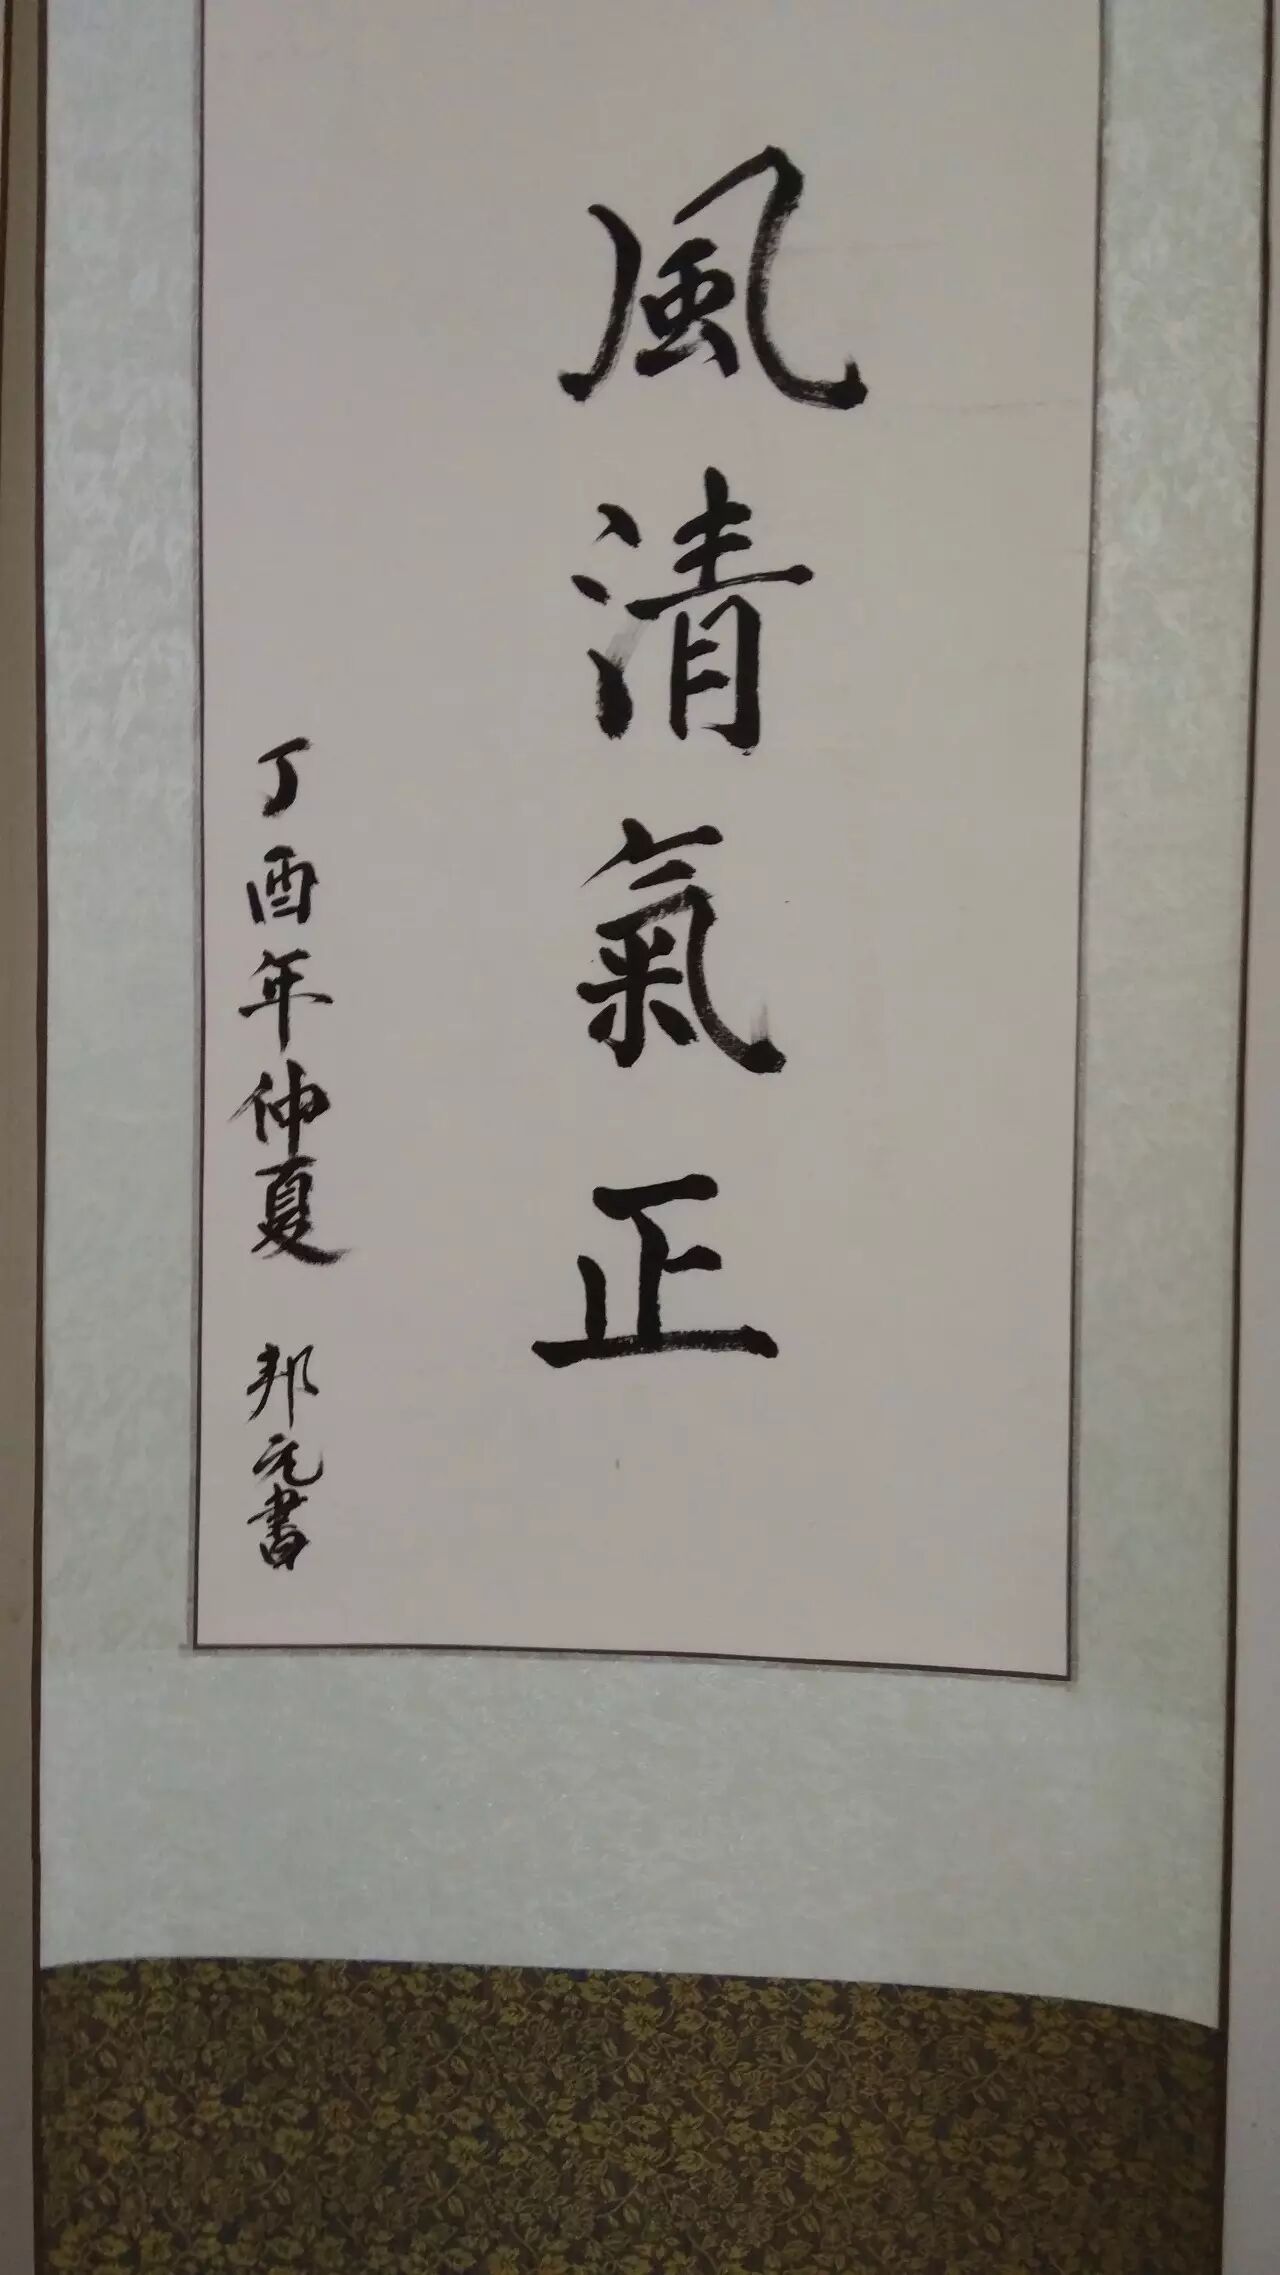 風清氣正
丁酉年仲夏 邦元書